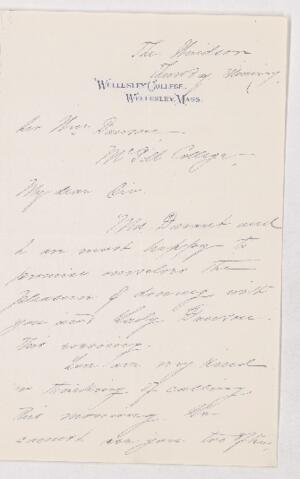 The Windsor
Thursday Morning
WELLESLEY COLLEGE,
WELLESLEY, MASS.
Sir Wm Dawson —
McGill College —
My dear Sir.
Mrs Durant and
I are most happy to
promise ourselves the
pleasure of dining with
you and Lady Dawson
this evening.
You are very kind
in thinking of calling
this morning. We
cannot see you too often,